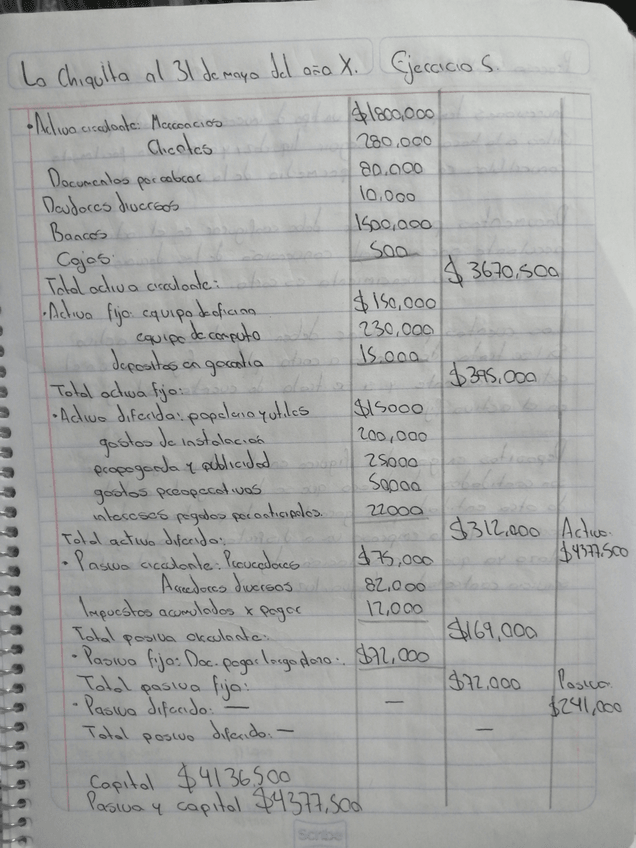 La Chiquita al 31 de mayo del año X. Ejercicio 5.
• Activo circulante: Mercancias $1800,000
Clientes 280,000
Documentos por cobrar 80,000
Deudores diversos 10,000
Bancos 1500,000
Cajas: 500
Total activo circulante: $3670,500
• Activo fijo: equipo de oficina $150,000
equipo de computo 230,000
depositos en garantia 15.000
Total activo fijo: $395,000
• Activo diferido: papeleria y utiles $15000
gastos de instalación 200,000
propaganda y publicidad 25000
gastos preoperativos 50,000
intereses pagados por anticipados. 22000
Total activo diferido: $312,000 Activo
• Pasivo circulante: Proveedores $75,000 $4377,500
Acreedores diversos 82,000
Impuestos acumulados x pagar 12,000
Total pasivo circulante: $169,000
• Pasivo fijo: Doc. pagar largo plazo: $72,000
Total pasivo fijo: $72,000 Pasivo
• Pasivo diferido: — — $241,000
Total pasivo diferido: — —
Capital $4136,500
Pasivo y capital $4377,500
Scribe